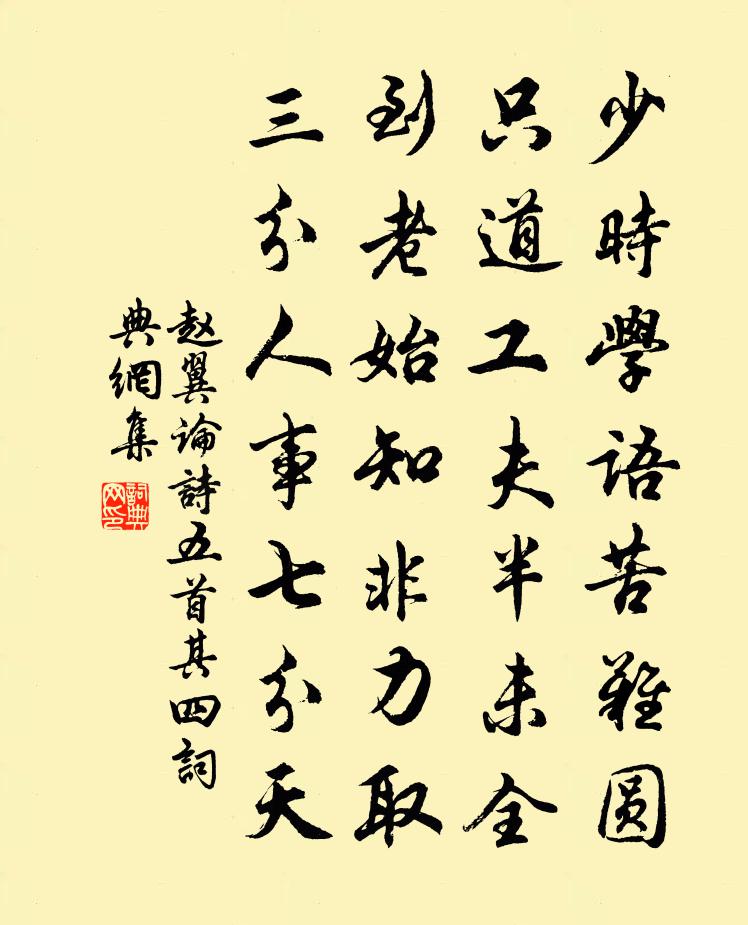 少時學語苦難圆
只道工夫半未全
到老始知非力取
三分人事七分天
赵翼论詩五首其四詞
典網集
詞典
网印